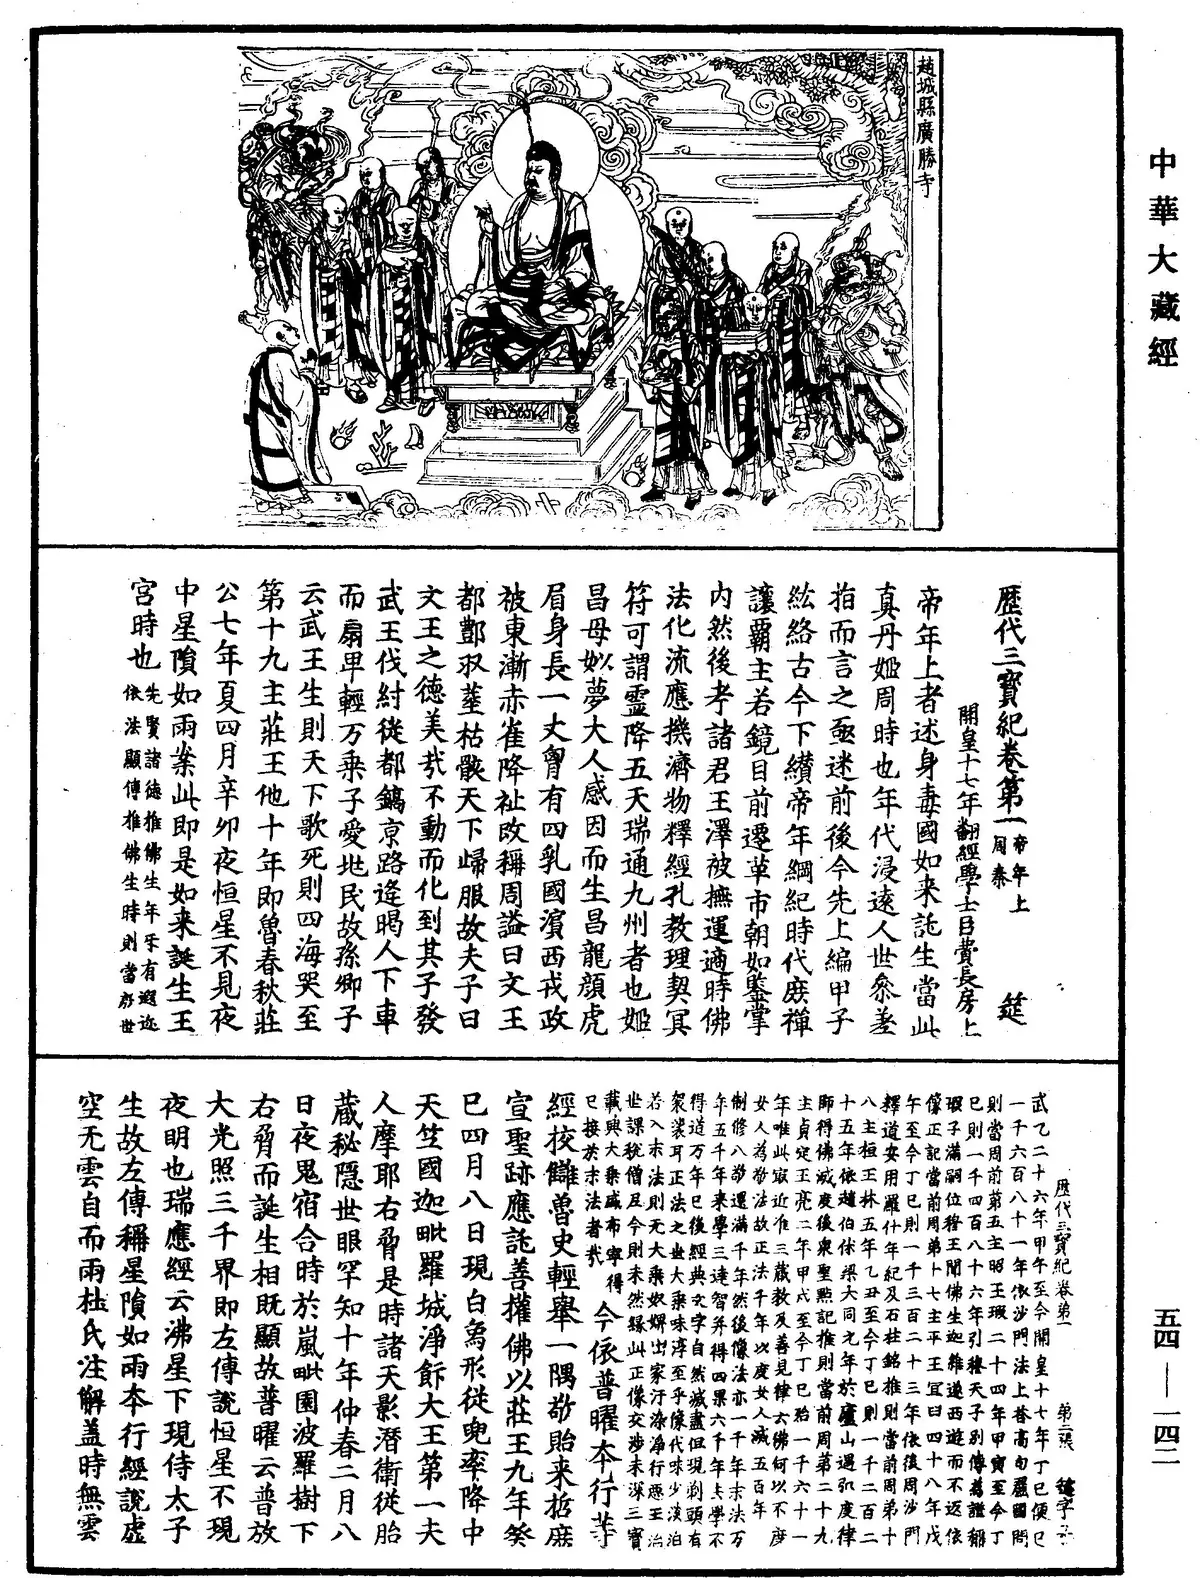 中華大藏經
趙城縣廣勝寺
歷代三寶紀卷第一 帝年上 周秦 筵
開皇十七年翻經學士臣費長房上
帝年上者述身毒國如来託生當此
真丹姬周時也年代浸遠人世叅差
指而言之亟迷前後今先上編甲子
紘絡古今下纘帝年綱紀時代庶禪
讓霸主若鏡目前遷革市朝如鑒掌
内然後考諸君王澤被撫運適時佛
法化流應機濟物釋經孔教理契冥
符可謂靈降五天瑞通九州者也姬
昌母姒夢大人感因而生昌龍顔虎
眉身長一丈胷有四乳國濵西戎政
被東漸赤雀降祉改稱周謚曰文王
都酆収葬枯骸天下歸服故夫子曰
文王之德美㢤不動而化到其子發
武王伐紂從都鎬京路逢暍人下車
而扇甲輕万乗子愛地民故孫卿子
云武王生則天下歌死則四海哭至
第十九主莊王他十年即魯春秋莊
公七年夏四月辛卯夜恒星不見夜
中星隕如雨案此即是如来誕生王
宮時也 先賢諸德推佛生年互有遐迩
依法顯傳推佛生時則當殷世
武乙二十六年甲午至今開皇十七年丁巳便已
一千六百八十一年依沙門法上荅高句麗國問
則當周前第五主昭王瑕二十四年甲寅至今丁
巳則一千四百八十六年引穆天子別傳為證稱
瑕子滿嗣位穆王聞佛生迦維遂西遊而不返依
像正記當前周第十七主平王宜臼四十八年戊
午至今丁巳則一千三百二十三年依後周沙門
釋道安用羅什年紀及石柱銘推則當前周第十
八主桓王林五年乙丑至今丁巳則一千二百二
十五年依趙伯休梁大同元年於廬山遇弘度律
師得佛滅度後衆聖點記推則當前周第二十九
主貞定王亮二年甲戌至今丁巳始一千六十一
年唯此㝡近准三藏教及善見律云佛何以不度
女人為敬法故正法千年以度女人減五百年
制修八敬還滿千年然後像法亦一千年末法万
年五千年来學三達智并得四果六千年去學不
得道万年已後經典文字自然滅盡但現剃頭有
袈裟耳正法之世大乗味淳至乎像代味少淡泊
若入末法則无大乗奴婢出家汙染淨行惡王治
世課稅僧尼今則未然縁此正像交涉未深三寶
載興大乗盛布寧得
已接於末法者㢤 今依普曜本行等
經校讎魯史輕舉一隅敬貽来哲庶
宣聖跡應託善權佛以莊王九年癸
巳四月八日現白象形從兜率降中
天竺國迦毗羅城淨飯大王第一夫
人摩耶右脅是時諸天影潛衛從胎
藏秘隱世眼罕知十年仲春二月八
日夜鬼宿合時於嵐毗園波羅樹下
右脅而誕生相既顯故普曜云普放
大光照三千界即左傳說恒星不現
夜明也瑞應經云沸星下現侍太子
生故左傳稱星隕如雨本行經說虛
空无雲自而雨杜氏注解蓋時無雲
歷代三寶紀卷第一
第二張
筵字
五四—一四二